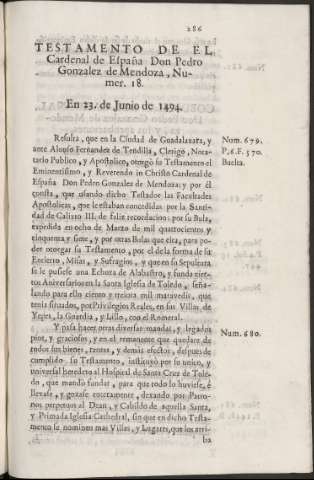 286
TESTAMENTO DE EL
Cardenal de España Don Pedro
Gonzalez de Mendoza, Nu-
mer. 18.
En 23. de Junio de 1494.
Resulta, que en la Ciudad de Guadalaxara, y
ante Alonso Fernandez de Tendilla, Clerigo, Nota-
rio Publico, y Apostolico, otorgò su Testamento el
Eminentisimo, y Reverendo in Christo Cardenal de
España Don Pedro Gonzales de Mendoza: y por èl
consta, que usando dicho Testador las Facultades
Apostolicas, que le estaban concedidas por la Santi-
dad de Calixto III. de feliz recordacion: por su Bula,
expedida en ocho de Marzo de mil quatrocientos y
cinquenta y siete, y por otras Bulas que cita, para po-
der otorgar su Testamento, por èl dà la forma de su
Encierro, Misas, y Sufragios, y que en su Sepultura
se le pusiese una Echura de Alabastro, y funda cier-
tos Aniversarios en la Santa Iglesia de Toledo, seña-
lando para ello ciento y treinta mil maravedis, que
tenia situados, por Privilegios Reales, en sus Villas de
Yepes, la Guardia, y Lillo, con el Romeral.
Y pasa hacer otras diversas mandas, y legados
pios, y graciosos, y en el remanente que quedare de
todos sus bienes, rentas, y demàs efectos, despues de
cumplido su Testamento, instituyò por su unico, y
universal heredero al Hospital de Santa Cruz de Tole-
do, que mandò fundar, para que todo lo huviese, è
llevase, y gozase enteramente, dexando por Patro-
nos perpetuos al Dean, y Cabildo de aquella Santa,
y Primada Iglesia Cathedral, sin que en dicho Testa-
mento se nominen mas Villas, y Lugares, que los arri-
ba
Num. 679.
P. 6. F. 570.
Buelta.
Num. 680.